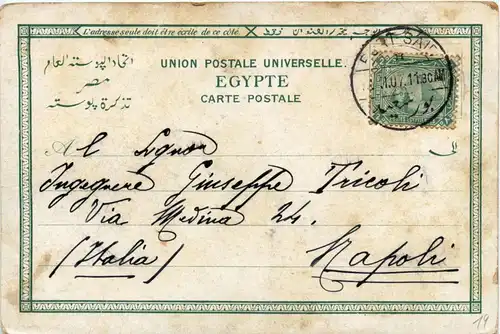 L'adresse seule doit être écrite de ce côté.
UNION POSTALE UNIVERSELLE.
EGYPTE
CARTE POSTALE
اتحاد البوسته العام
مصر
تذكرة بوسته
PORT SAID
07. 11.30 AM
بور سعيد
Al Signor
Ingegnere Giuseppe Tricoli
Via Medina 24.
(Italia) Napoli
19